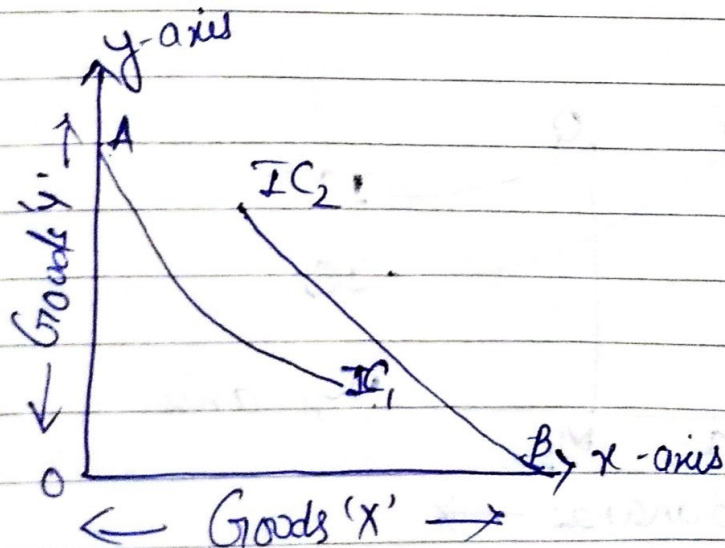 y-axis
A
IC₂
Goods 'y'
IC₁
B
x-axis
O
Goods 'X'